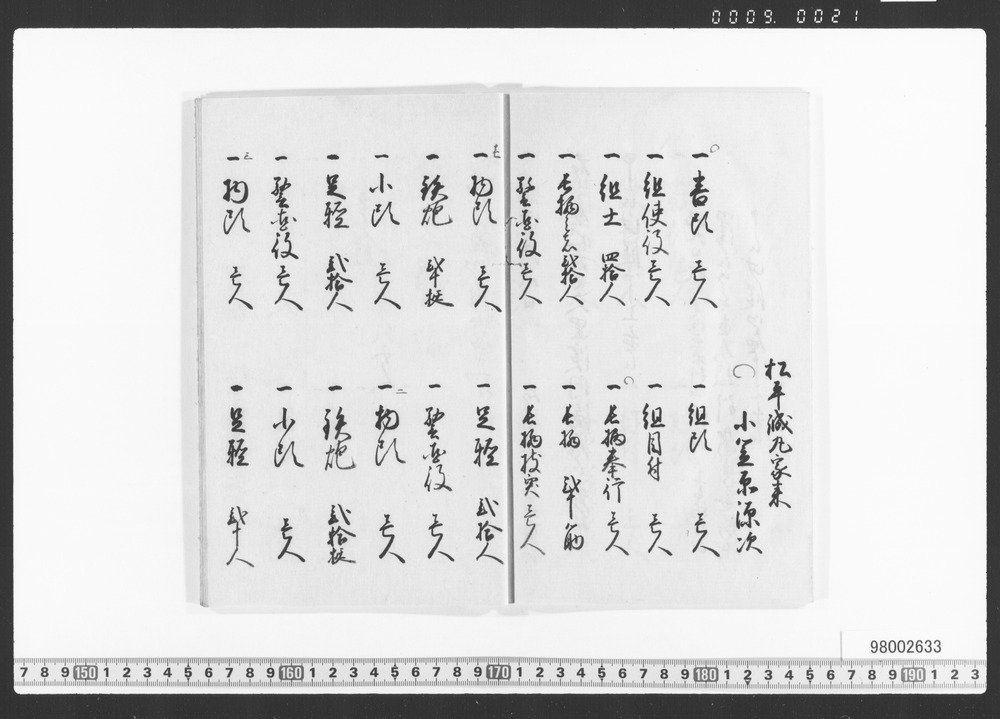 0009. 0021
松平誠丸家来
〇 小笠原源次
〇
一 番頭 壱人
一 組頭 壱人
一 組使役 壱人
一 組目付 壱人
一 組士 四拾人
〇
一 長柄奉行 壱人
一 長柄之者 弐拾人
一 長柄 弐十筋
一 壱人
一 長柄杖突 壱人
一 物頭 壱人
一 足軽 弐拾人
一 鉄炮 弐十挺
一 壱人
一 小頭 壱人
二
一 物頭 壱人
一 足軽 弐拾人
一 鉄炮 弐拾挺
一 壱人
一 小頭 壱人
三
一 物頭 壱人
一 足軽 弐十人
98002633
7 8 9 150 1 2 3 4 5 6 7 8 9 160 1 2 3 4 5 6 7 8 9 170 1 2 3 4 5 6 7 8 9 180 1 2 3 4 5 6 7 8 9 190 1 2 3